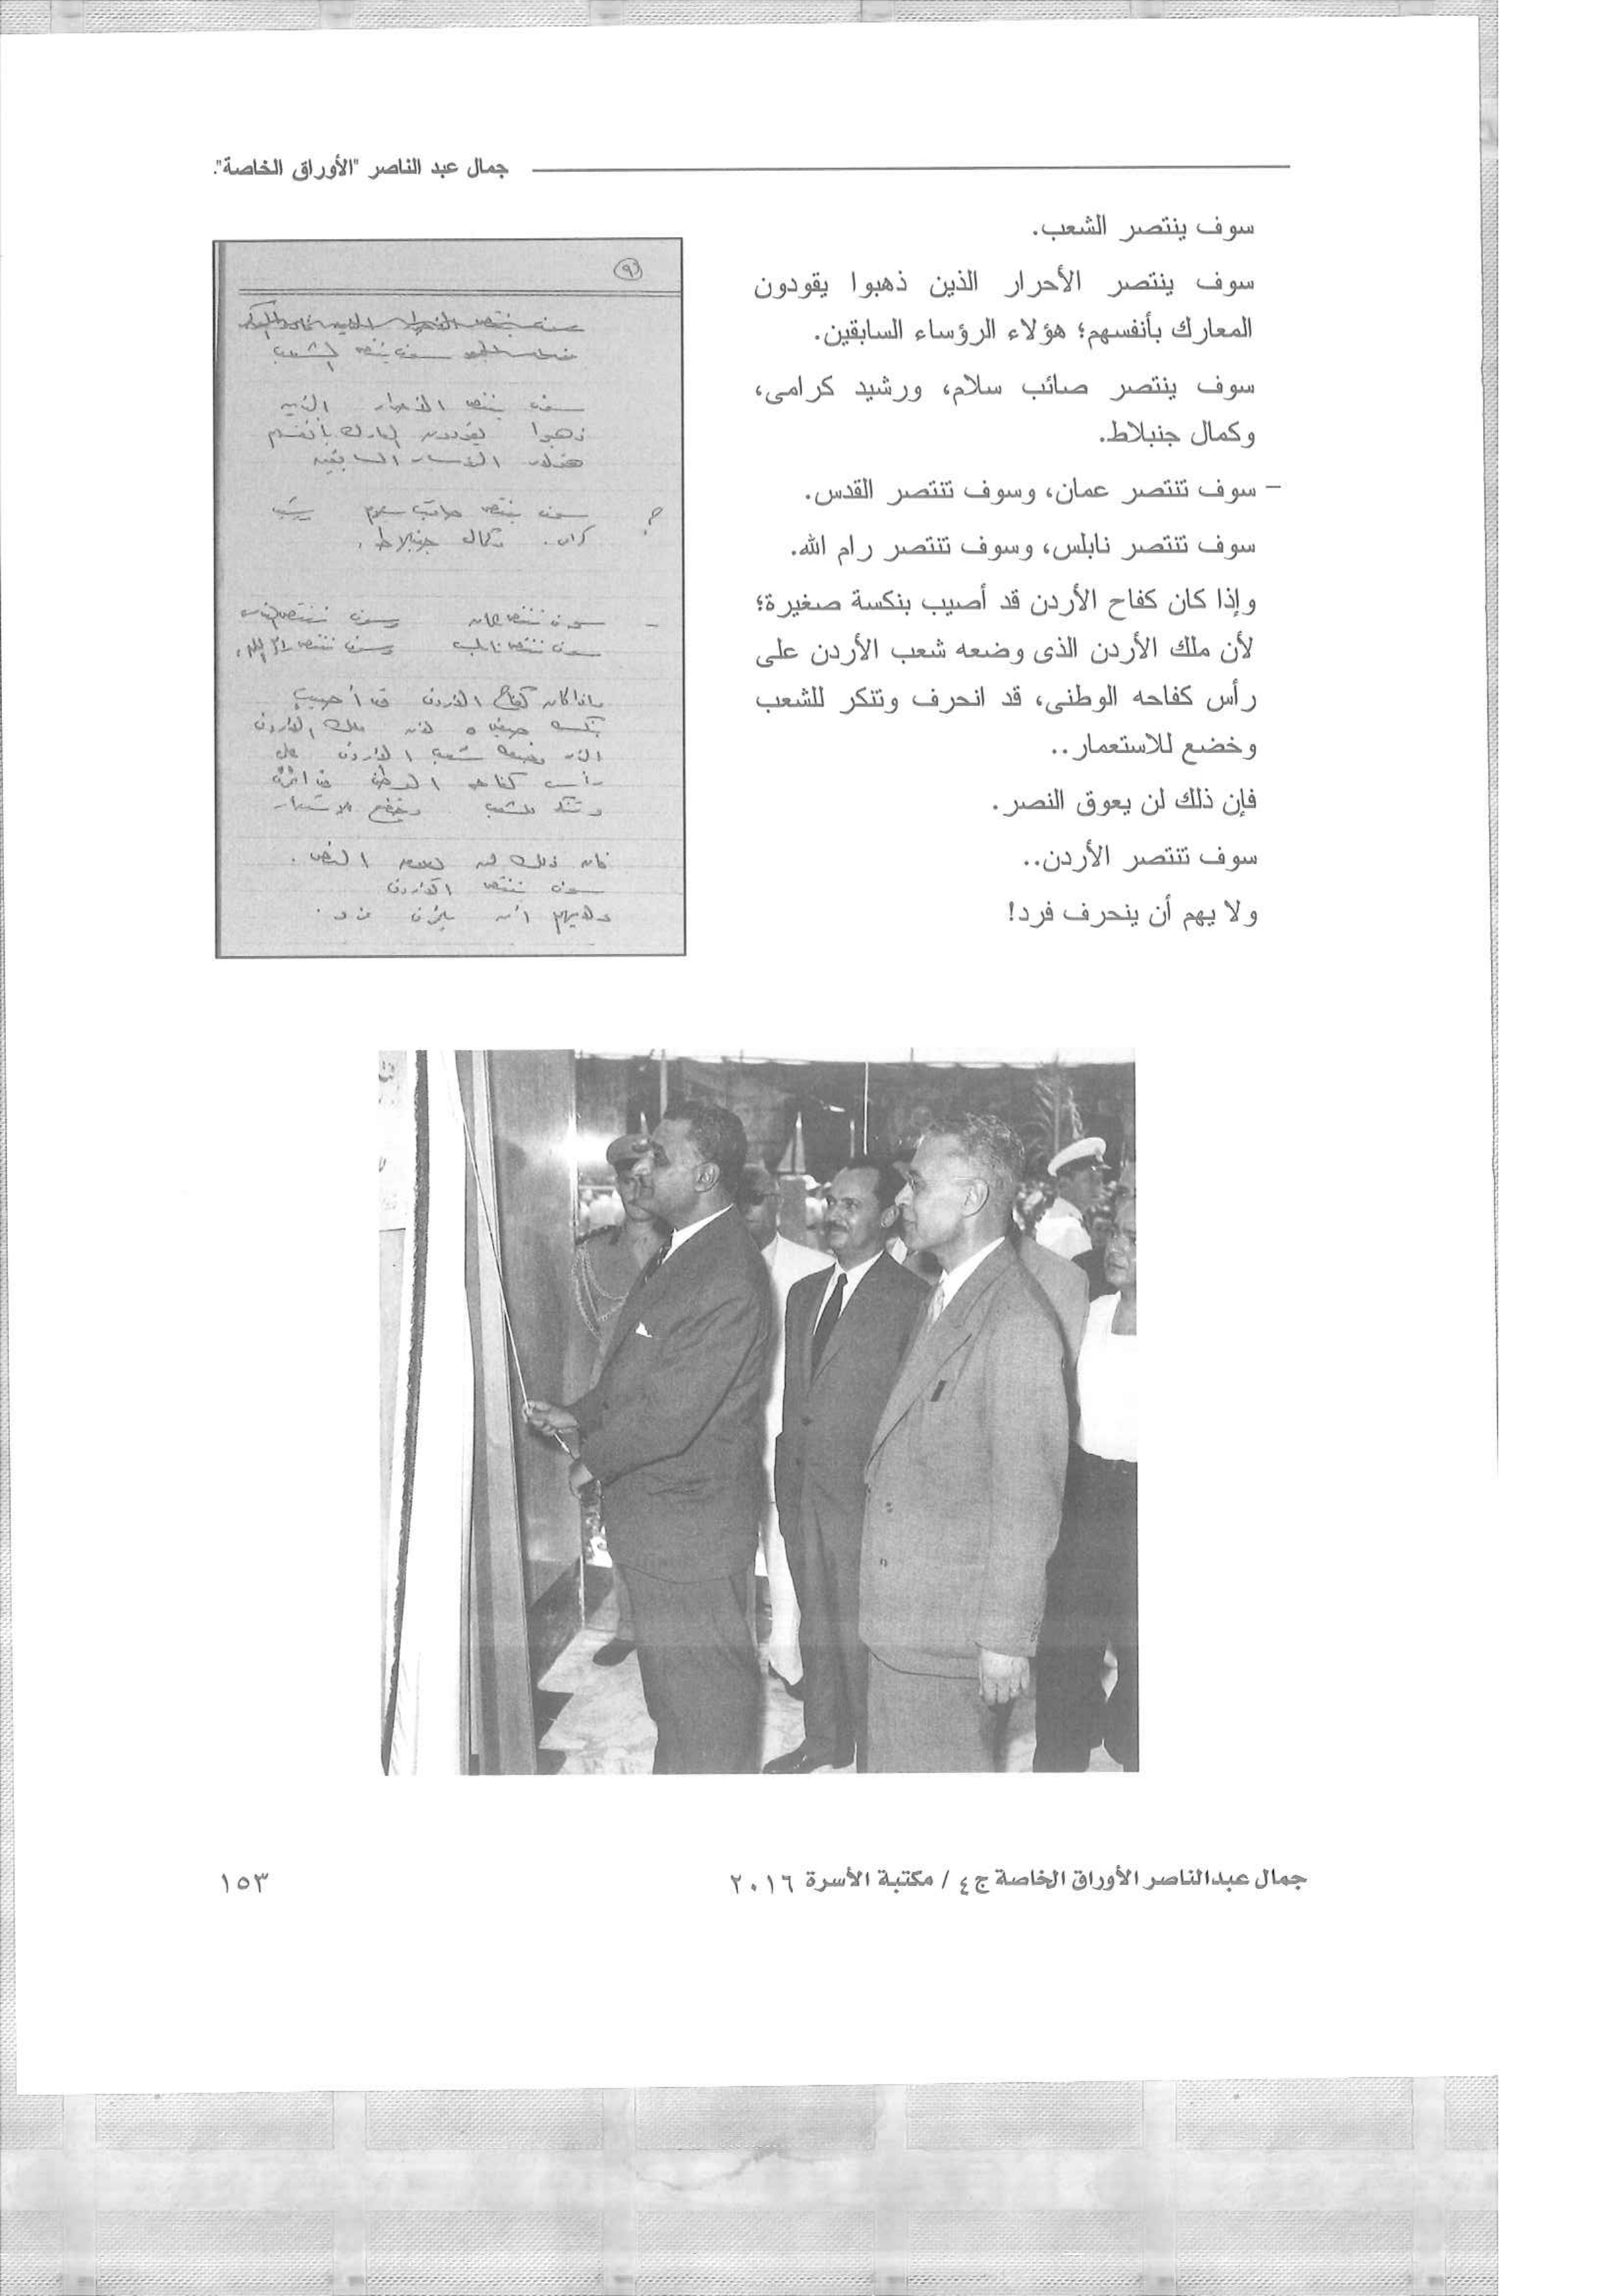 جمال عبد الناصر "الأوراق الخاصة".
سوف ينتصر الشعب.
سوف ينتصر الأحرار الذين ذهبوا يقودون
المعارك بأنفسهم؛ هؤلاء الرؤساء السابقين.
سوف ينتصر صائب سلام، ورشيد كرامى،
وكمال جنبلاط.
– سوف تنتصر عمان، وسوف تنتصر القدس.
سوف تنتصر نابلس، وسوف تنتصر رام الله.
وإذا كان كفاح الأردن قد أصيب بنكسة صغيرة؛
لأن ملك الأردن الذى وضعه شعب الأردن على
رأس كفاحه الوطنى، قد انحرف وتنكر للشعب
وخضع للاستعمار..
فإن ذلك لن يعوق النصر.
سوف تنتصر الأردن..
ولا يهم أن ينحرف فرد!
٩
سوف ينتصر الشعب
سوف ينتصر الأحرار الذين
ذهبوا يقودون المعارك بأنفسهم
هؤلاء الرؤساء السابقين
سوف ينتصر صائب سلام رشيد
كرامى. وكمال جنبلاط.
– سوف تنتصر عمان وسوف تنتصر القدس
سوف تنتصر نابلس وسوف تنتصر رام الله.
وإذا كان كفاح الأردن قد أصيب
بنكسة صغيرة لأن ملك الأردن
الذى وضعه شعب الأردن على
رأس كفاحه الوطنى قد انحرف
وتنكر للشعب وخضع للاستعمار
فإن ذلك لن يعوق النصر.
سوف تنتصر الأردن
ولا يهم أن ينحرف فرد.
جمال عبدالناصر الأوراق الخاصة ج٤ / مكتبة الأسرة ٢٠١٦
١٥٣